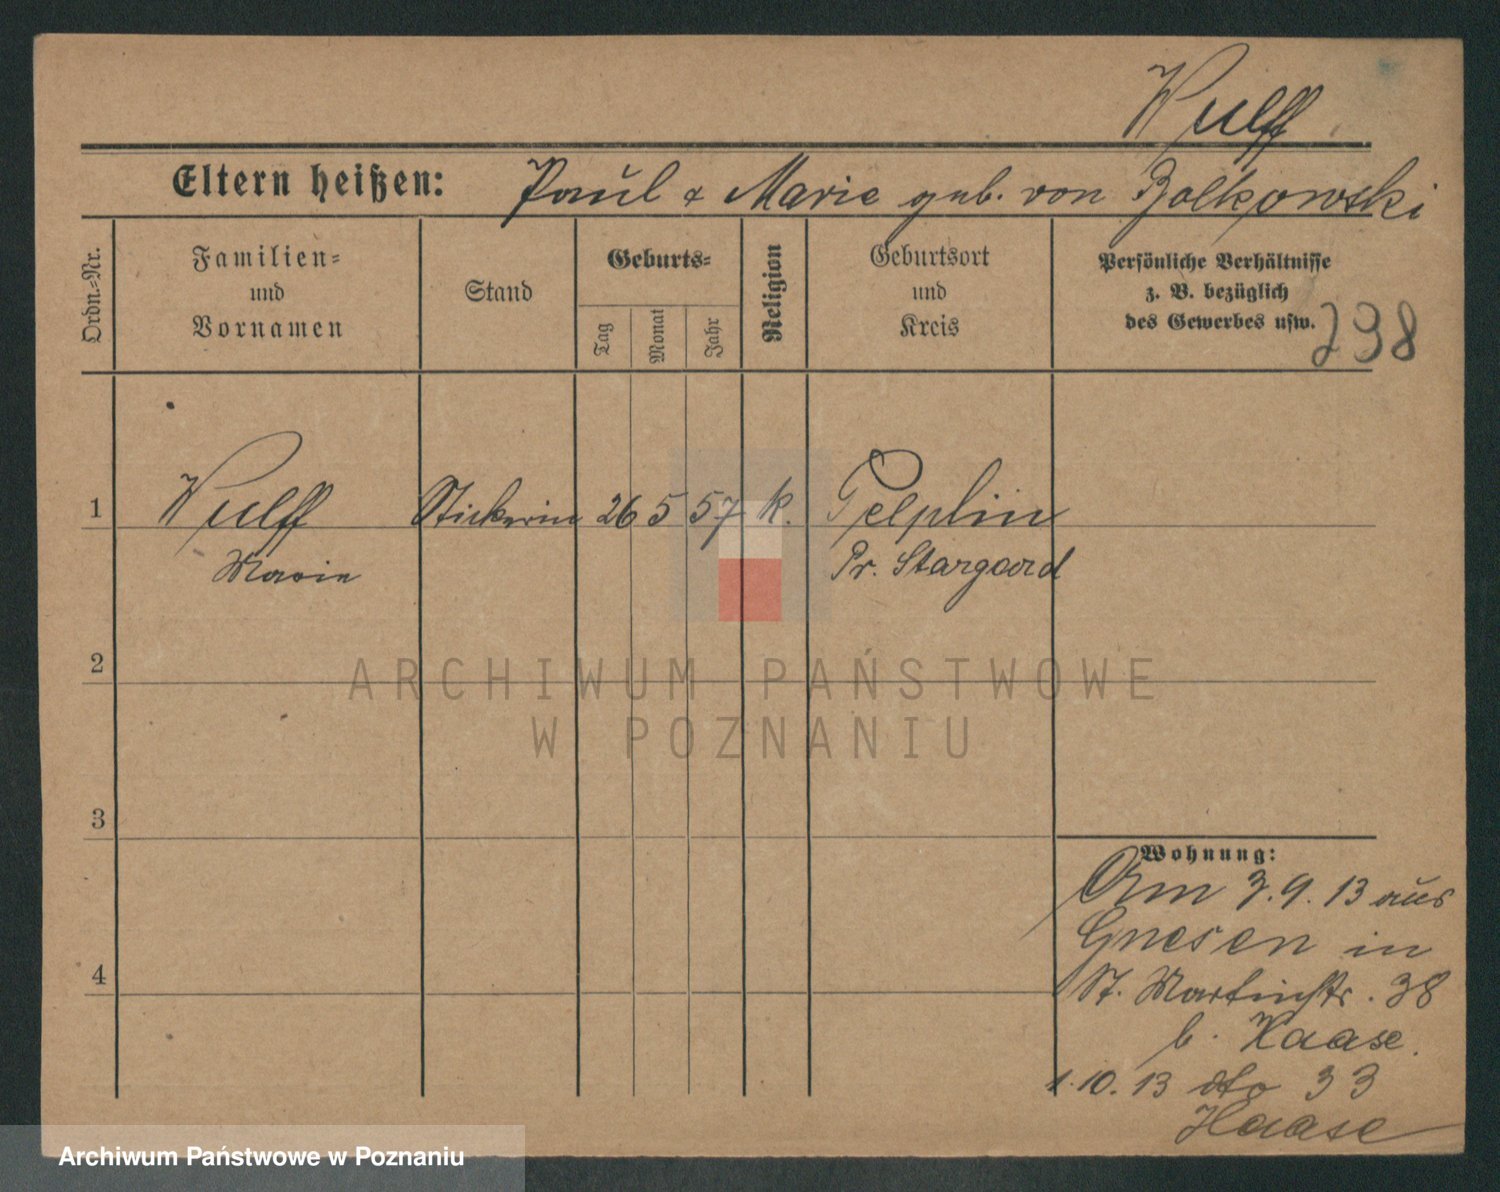 Wulff
Eltern heißen: Paul & Marie geb. von Bolkowski
Ordn.=Nr.
Familien=
und
Vornamen
Stand
Geburts=
Tag
Monat
Jahr
Religion
Geburtsort
und
Kreis
Persönliche Verhältnisse
z. B. bezüglich
des Gewerbes usw.
298
1 Wulff Stickerin 26 5 57 k. Pelplin
Marie Pr. Stargard
2
ARCHIWUM PAŃSTWOWE
W POZNANIU
3
Wohnung:
Am 3.9.13 aus
Gnesen in
4
St. Martinstr. 38
b. Haase.
1.10.13 dto 33
Haase
Archiwum Państwowe w Poznaniu